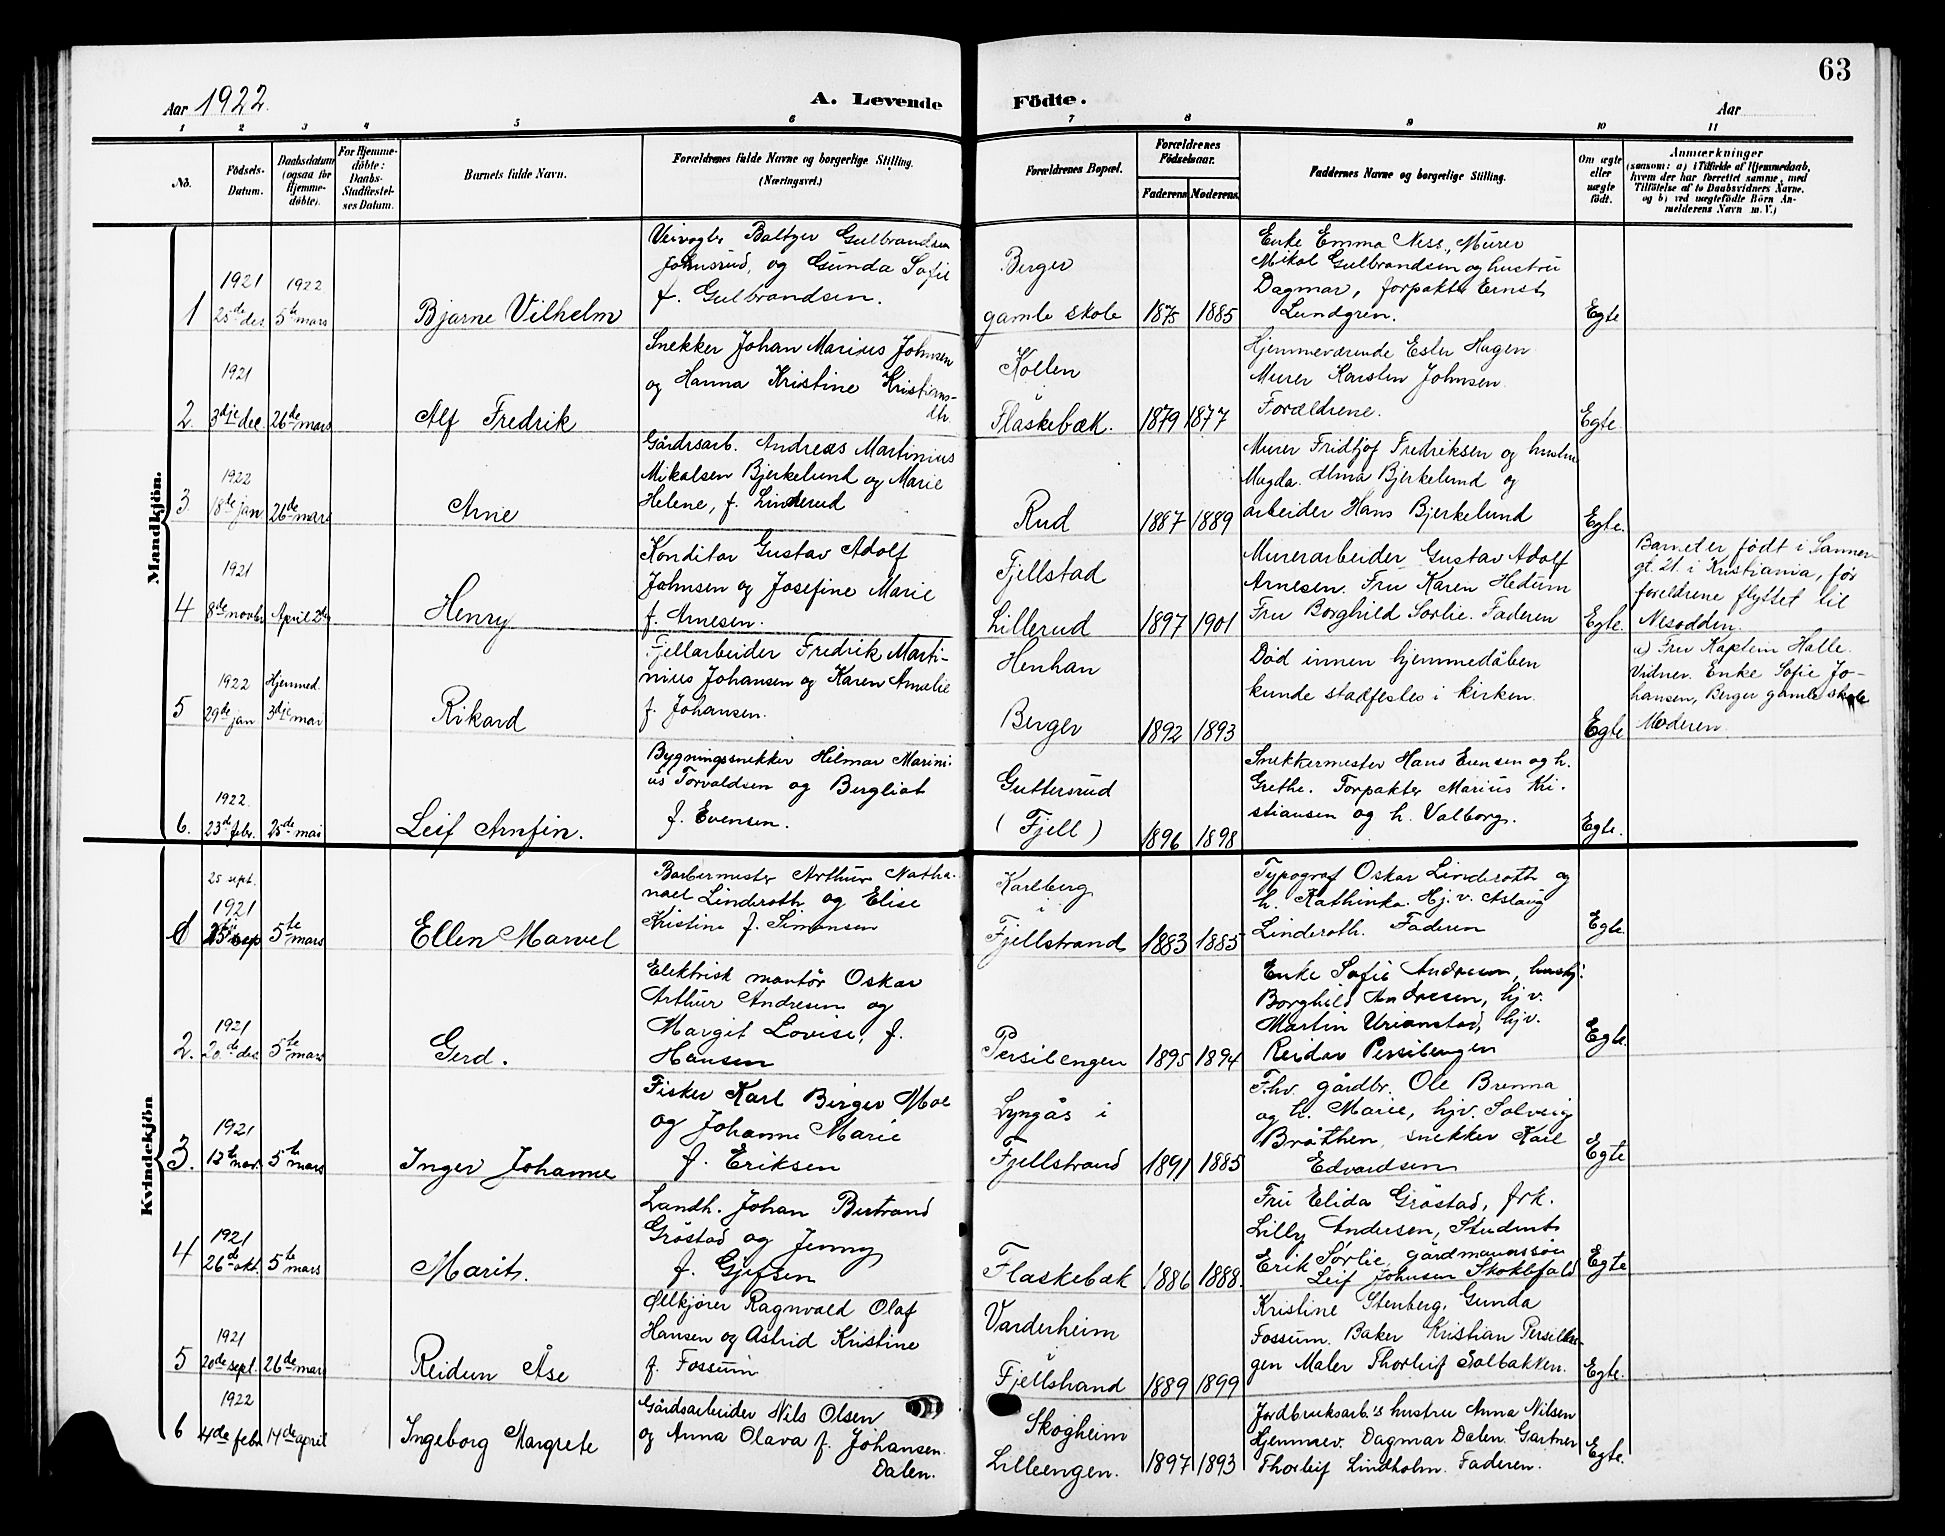 63
Aar 1922.
A. Levende Födte.
Aar
1 2 3 4 5 6 7 8 9 10 11
No.
Födsels-Datum.
Daabsdatum (ogsaa for Hjemme-döbte).
For Hjemme-döbte: Daabs-Stadfæstel-ses Datum.
Barnets fulde Navn.
Forældrenes fulde Navne og borgerlige Stilling. (Næringsvei.)
Forældrenes Bopæl.
Forældrenes Födselsaar.
Faderens Moderens.
Faddernes Navne og borgerlige Stilling.
Om ægte eller uægte födt.
Anmærkninger
(saasom: a) i Tilfælde af Hjemmedaab, hvem der har forrettet samme, med Tilföielse af to Daabsvidners Navne, og b) ved uægtefödte Börn An-melderens Navn m. V.)
Mandkjön.
1
1921
25de des
1922
5te mars
Bjarne Vilhelm
Veivogter Baltzer Gulbrandsen
Johnsrud, og Gunda Sofie
f. Gulbrandsen.
Berger
gamle skole
1875 1885
Enke Emma Ness, Murer
Mikal Gulbrandsen og hustru
Dagmar, forpakter Ernst
Lundgren.
Egte
2.
1921
3dje dec.
26de mars
Alf Fredrik
Snekker Johan Marius Johnsen
og Hanna Kristine Kristians-
dtr.
Kollen
Flaskebæk.
1879 1877
Hjemmeværende Ester Hagen
Murer Karsten Johnsen
Forældrene.
Egte
3
1922
18de jan
26de mars
Arne
Gårdsarb. Andreas Martinius
Mikalsen Bjerkelund og Marie
Helene, f. Linderud
Rud
1887 1889
Murer Fridtjof Fredriksen og hustru
Magda. Alma Bjerkelund og
arbeider Hans Bjerkelund
Egte.
4
1921
8de novbr
April 2den
Henry
Konditor Gustav Adolf
Johnsen og Josefine Marie
f. Arnesen.
Fjellstad
Lillerud
1897 1901
Murerarbeider Gustav Adolf
Arnesen. Fru Karen Hedum
Fru Borghild Sørlie. Faderen
Egte.
Barnet er født i Sanner-
gt. 21. i Kristiania, før
foreldrene flyttet til
Nesodden.
5
1922
29de jan
Hjemmed.
3dje mar
Rikard
Fjellarbeider Fredrik Marti-
nius Johansen og Karen Amalie
f. Johansen.
Henhan
Berger
1892 1893
Død innen hjemmedåben
kunde stadfestes i kirken.
Egte
a) Fru Kaptein Halle.
Vidner. Enke Sofie Jo-
hansen, Berger gamle skole
Moderen.
6.
1922.
23de febr.
25de mai
Leif Arnfin.
Bygningssnekker Hilmar Marini-
us Torvaldsen og Bergliot
f. Evensen.
Guttersrud
(Fjell)
1896 1898
Snekkermester Hans Evensen og h.
Grethe. Forpakter Marius Kri-
stiansen og h. Valborg.
Egte.
Kvindekjön
1
25 sept.
1921
5te mars
Ellen Marvel
Barbermester Arthur Natha-
nael Linderoth og Elise
Kristine f. Simensen
Karlberg
i
Fjellstrand
1883 1885
Typograf Oskar Linderoth og
h. Kathinka. Hj. v. Aslaug
Linderoth. Faderen
Egte.
2.
1921
20de des
5te mars
Gerd.
Elektrisk montör Oskar
Arthur Andresen og
Margit Lovise, f.
Hansen
Persilengen
1895 1894
Enke Sofie Andresen, hushj.
Borghild Andresen, hj v.
Martin Urianstad, hjv.
Reidar Persilengen
Egte.
3.
1921
5te mars
Inger Johanne
Fisker Karl Birger Moe
og Johanne Marie
f. Eriksen
Lyngås i
Fjellstrand
1891 1885
Fhv. gårdbr. Ole Brenna
og h. Marie, hjv. Solveig
Bråthen, snekker Karl
Edvardsen
Egte
4
1921
26de okt.
5te mars
Marit.
Landh. Johan Bertrand
Gröstad og Jenny
f. Gjefsen
Flaskebæk
1886 1888.
Fru Elida Gröstad, frk.
Lilly Andersen, Student
Erik Sørlie, gårdmannssön
Leif Johnsen Skoklefald
Egte
5
1921
20de sept.
26de mars
Reidun Åse
Ølkjører Ragnvald Olaf
Hansen og Astrid Kristine
f. Fossum
Varderheim
Fjellstrand
1889 1899
Kristine Stenberg, Gunda
Fossum. Baker Kristian Persilen-
gen Maler Thorleif Solbakken.
Egte.
6
1922
4de febr
17de april
Ingeborg Margrete
Gårdsarbeider Nils Olsen
og Anna Olava f. Johansen
Dalen.
Skogheim
Lilleengen.
1897 1893
Jordbruksarb.'s hustru Anna Nilsen
Hjemmev. Dagmar Dalen. Gartner
Thorleif Lindholm. Faderen.
Egte.